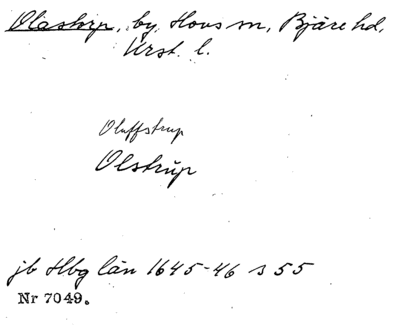 Olastorp, by, Hovs sn, Bjäre hd,
Krst. l.
Oluffstrup
Olstrup
jb Hbg län 1645-46 s 55
Nr 7049.